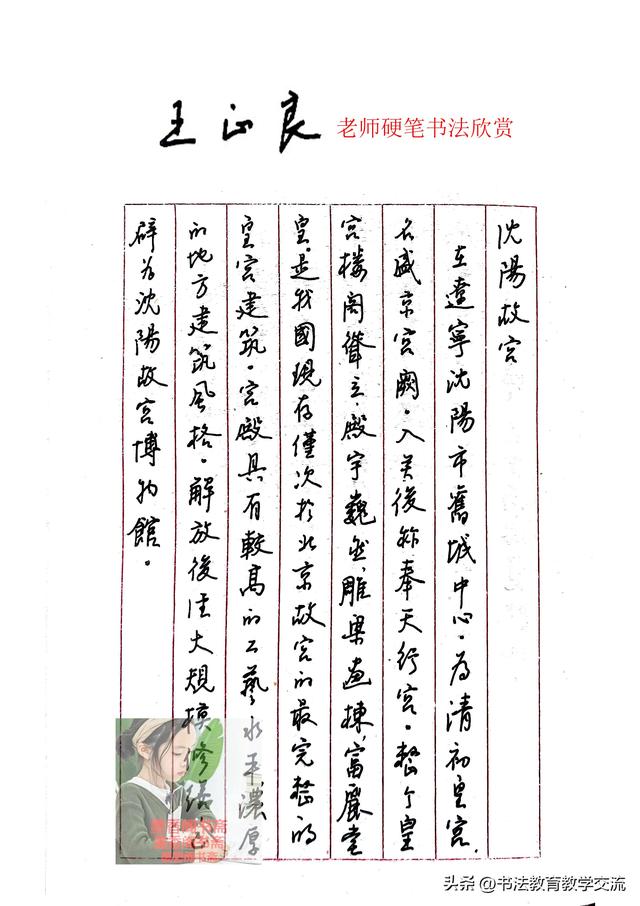 王正良 老师硬笔书法欣赏
沈陽故宫
在遼寧沈陽市舊城中心。为清初皇宫,
名盛京宫阙。入关後称奉天行宫。整个皇
宫楼阁聳立,殿宇巍然,雕梁画棟,富麗堂
皇。是我國現存僅次於北京故宫的最完整的
皇宫建筑。宫殿具有較高的工藝水平濃厚
的地方建筑風格。解放後经大規模修缮已
辟为沈陽故宫博物館。
头条 @书法教育教学交流